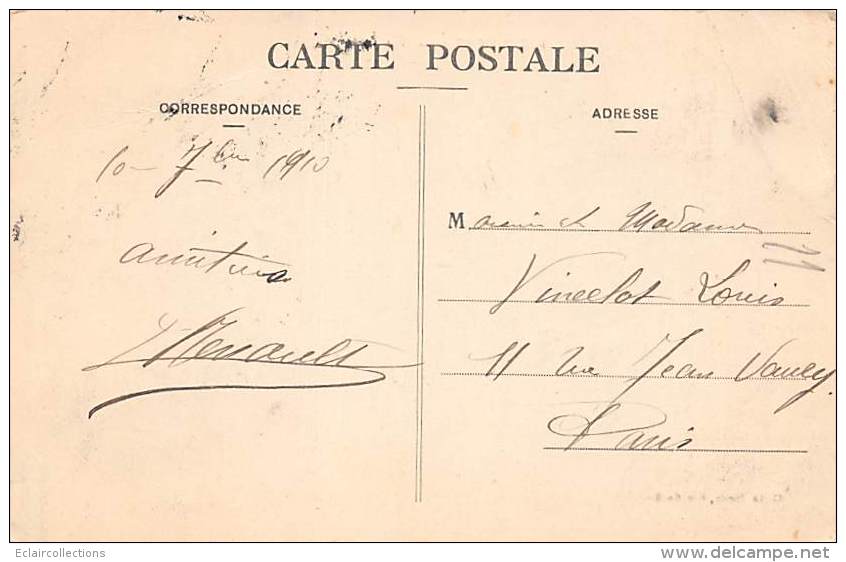 CARTE POSTALE
CORRESPONDANCE
10 - 7bre 1910
amitiés
Renault
ADRESSE
Monsieur et Madame
Vincelot Louis
11 rue Jean Vauey
Paris
11
Eclaircollections
www.delcampe.net